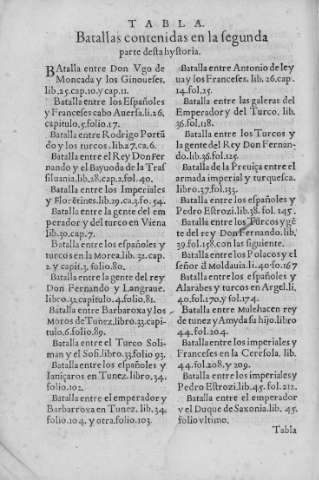 TABLA.
Batallas contenidas en la segunda
parte desta hystoria.
BAtalla entre Don Vgo de
Moncada y los Ginoueses.
lib.25.cap.10.y cap.11.
Batalla entre los Españoles
y Franceses cabo Auersa.li.26,
capitulo,5.folio.17.
Batalla entre Rodrigo Portũ
do y los turcos.lib.27.ca.6.
Batalla entre el Rey Don Fer
nando y el Bayuoda de la Tras
siluania.lib.28.cap.2.fol.40.
Batalla entre los Imperiales
y Florẽtines.lib.29.ca.3.fo.54.
Batalla entre la gente del em
perador y del turco en Viena
lib.30.cap.7.
Batalla entre los españoles y
turcos en la Morea.lib.32.cap.
2.y capit.3.folio.80.
Batalla entre la gente del rey
Don Fernando y Langraue.
libro.33.capitulo.4.folio,81.
Batalla entre Barbaroxa y los
Moros de Tunez,libro.33.capi-
tulo,6.folio.89.
Batalla entre el Turco Soli-
man y el Sofi.libro.33.folio 93.
Batalla entre los españoles y
Ianiçaros en Tunez.libro,34.
folio.102.
Batalla entre el emperador y
Barbarroxa en Tunez.lib.34.
folio.104.y otra.folio.103.
Batalla entre Antonio de ley
ua y los Franceses.lib.26.cap.
14.fol.25.
Batalla entre las galeras del
Emperador y del Turco.lib.
36.fol.118.
Batalla entre los Turcos y
la gente del Rey Don Fernan-
do.lib.36.fol.125.
Batalla de la Preuiça entre el
armada imperial y turquesca.
libro.37.fol.133.
Batalla entre los españoles y
Pedro Estrozi.lib.38.fol.145.
Batalla entre los Turcos y gẽ
te del rey Don Fernando.lib,
39.fol.158.con las siguiente.
Batalla entre los Polacos y el
señor de Moldauia.li.40.fo.167
Batalla entre los españoles y
Alarabes y turcos en Argel.li,
40.fol.170.y fol.174.
Batalla entre Mulehacen rey
de tunez y Amyda su hijo.libro
44.fol.204.
Batalla entre los imperiales y
Franceses en la Ceresola. lib.
44.fol.208.y 209.
Batalla entre los imperiales y
Pedro Estrozi.lib.45.fol.212.
Batalla entre el emperador
y el Duque de Saxonia.lib. 45.
folio vltimo.
Tabla